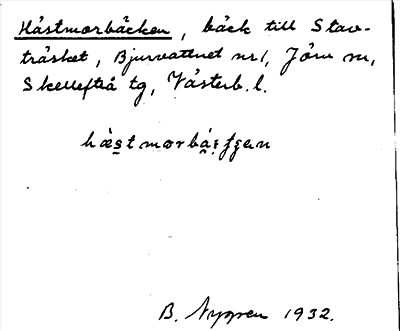 Hästmorbäcken, bäck till Stav-
träsket, Bjurvattnet nr 1, Jörn sn,
Skellefteå tg, Västerb. l.
B. Nygren 1932.